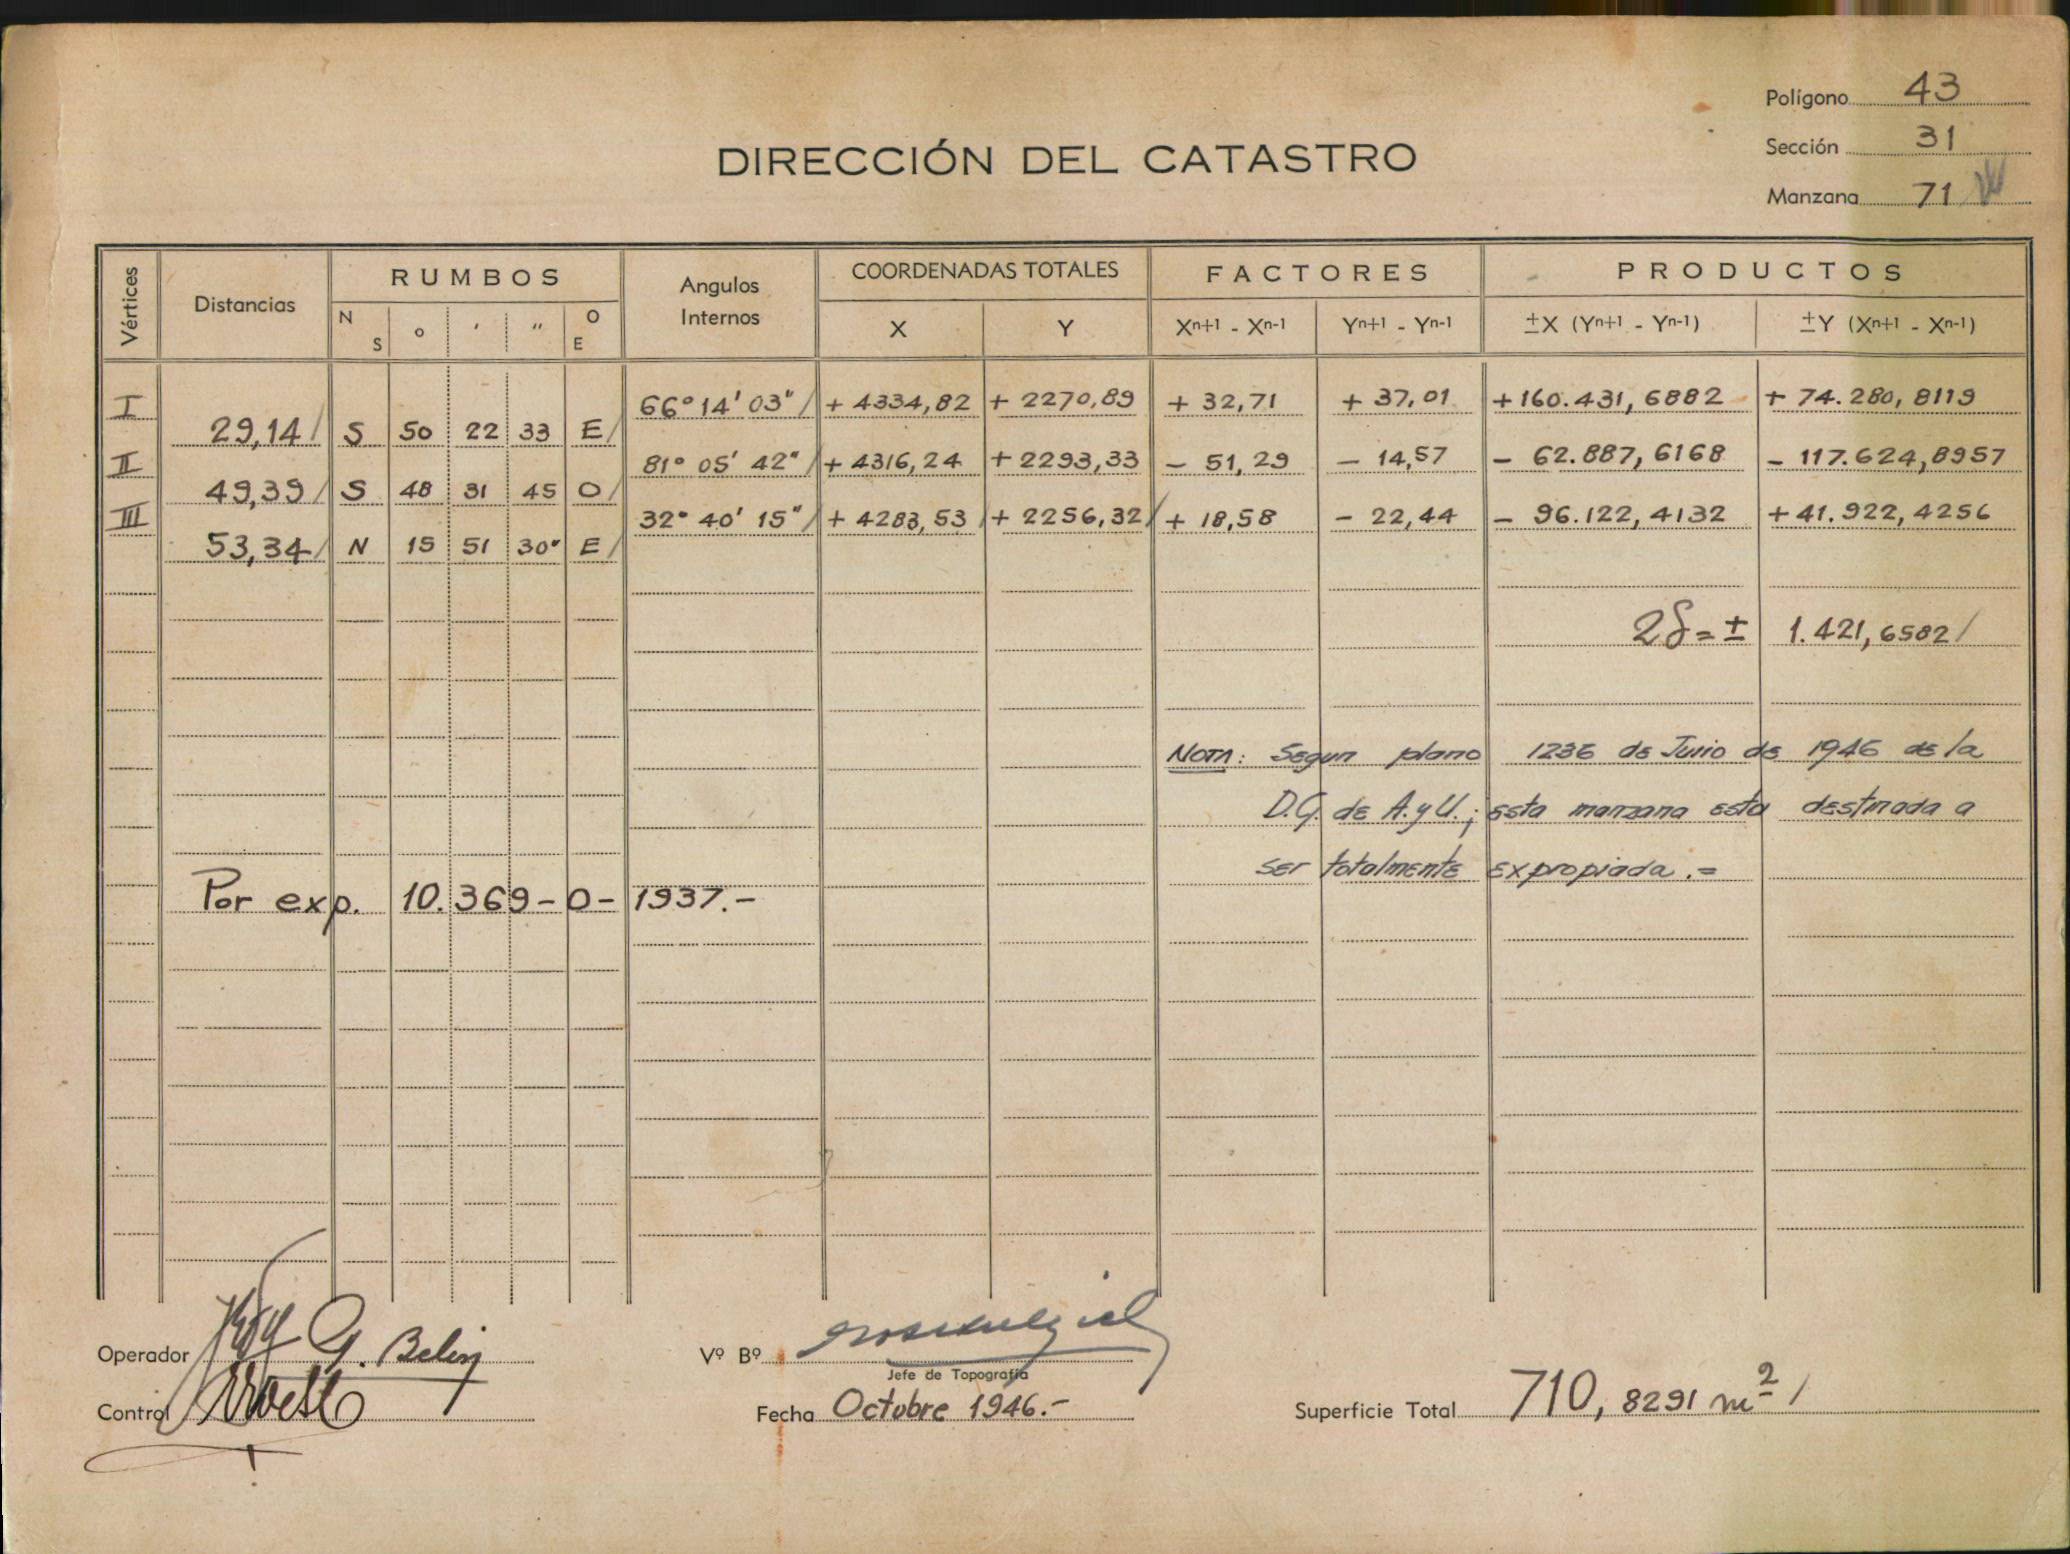 Polígono 43
Sección 31
Manzana 71
DIRECCIÓN DEL CATASTRO
Vértices Distancias RUMBOS Angulos Internos COORDENADAS TOTALES FACTORES PRODUCTOS
N S ° ′ ″ O E X Y Xn+1 - Xn-1 Yn+1 - Yn-1 ±X (Yn+1 - Yn-1) ±Y (Xn+1 - Xn-1)
I 66° 14' 03" / + 4334,82 + 2270,89 + 32,71 + 37,01 + 160.431,6882 + 74.280,8119
29,14 / S 50 22 33 E /
II 81° 05' 42" / + 4316,24 + 2293,33 - 51,29 - 14,57 - 62.887,6168 - 117.624,8957
49,39 / S 48 31 45 O /
III 32° 40' 15" / + 4283,53 / + 2256,32 / + 18,58 - 22,44 - 96.122,4132 + 41.922,4256
53,34 / N 15 51 30" E /
2S = ± 1.421,6582 /
NOTA: Segun plano 1236 de Junio de 1946 de la
D.G. de A. y U.; esta manzana esta destinada a
ser totalmente expropiada .=
Por exp. 10.369-0-1937.-
Operador G. Belin
Vº Bº
Jefe de Topografía
Control
Fecha Octubre 1946.-
Superficie Total 710,8291 m² /